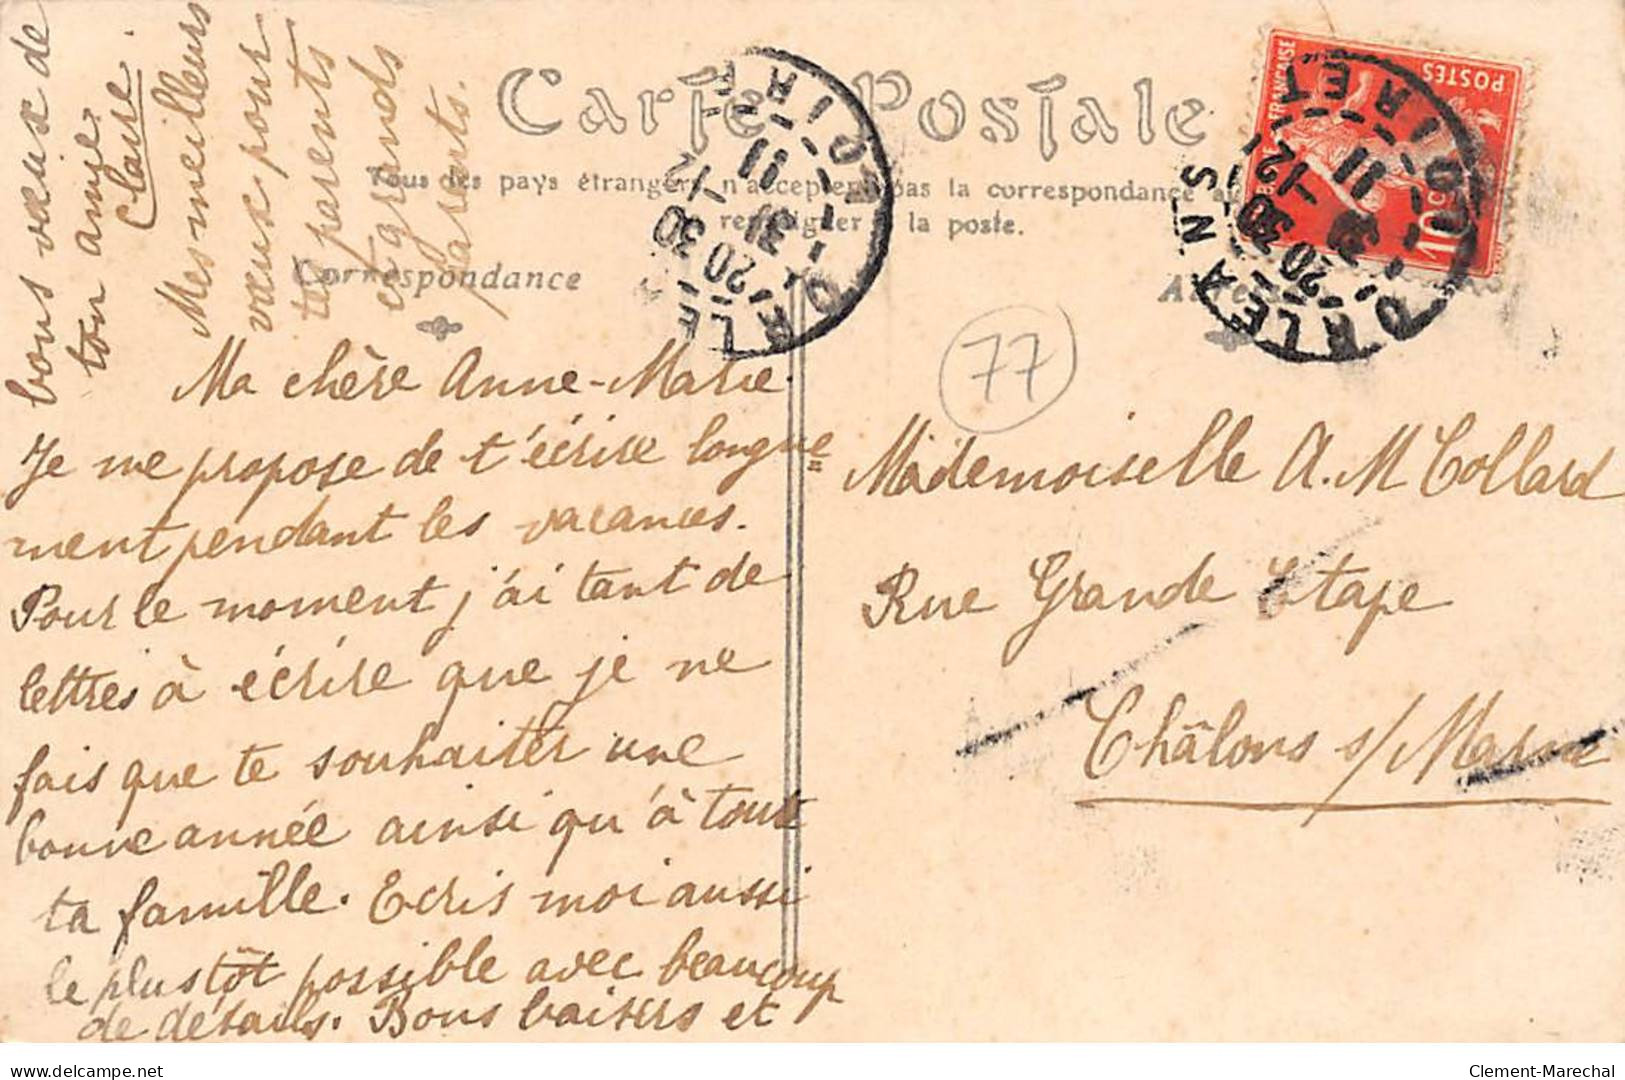 Carte Postale
Tous les pays étrangers n'acceptent pas la correspondance au
renseigner à la poste.
Correspondance
Ma chère Anne-Marie.
Je me propose de t'écrire longue=
ment pendant les vacances.
Pour le moment j'ai tant de
lettres à écrire que je ne
fais que te souhaiter une
bonne année ainsi qu'à toute
ta famille. Ecris moi aussi
le plus tôt possible avec beaucoup
de détails. Bons baisers et
bons vœux de
ton amie.
Claire
Mes meilleurs
vœux pour
tes parents
et grands
parents.
ORLEANS
LOIRET
20 30
31 -12
11
POSTES
10c
77
Mademoiselle A. M Collard
Rue Grande Etape
Châlons s/Marne
delcampe.net
Clement-Marechal